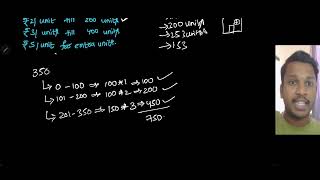 ₹2/unit till 200 units
₹3/unit till 400 units
₹5/unit for extra units.
→ 200 units
→ 253 units
→ 153
350
↳ 0 - 100 ⇒ 100 * 1 → 100 ✓
↳ 101 - 200 ⇒ 100 * 2 → 200 ✓
↳ 201 - 350 ⇒ 150 * 3 → 450 ✓
750